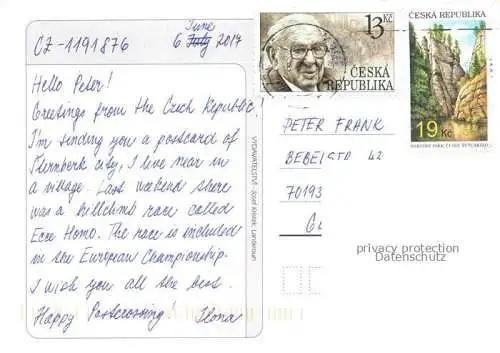 CZ-1191876
June
6 July 2017
Hello Peter!
Greetings from the Czech Republic!
I'm sending you a postcard of
Šternberk city, I live near in
a village. Last weekend there
was a hillclimb race called
Ecce Homo. The race is included
in the European Championship.
I wish you all the best.
Happy Postcrossing! Ilona
13 Kč
ČESKÁ
REPUBLIKA
ČESKÁ REPUBLIKA
19 Kč
NÁRODNÍ PARK ČESKÉ ŠVÝCARSKO
PETER FRANK
42
70193
privacy protection
Datenschutz